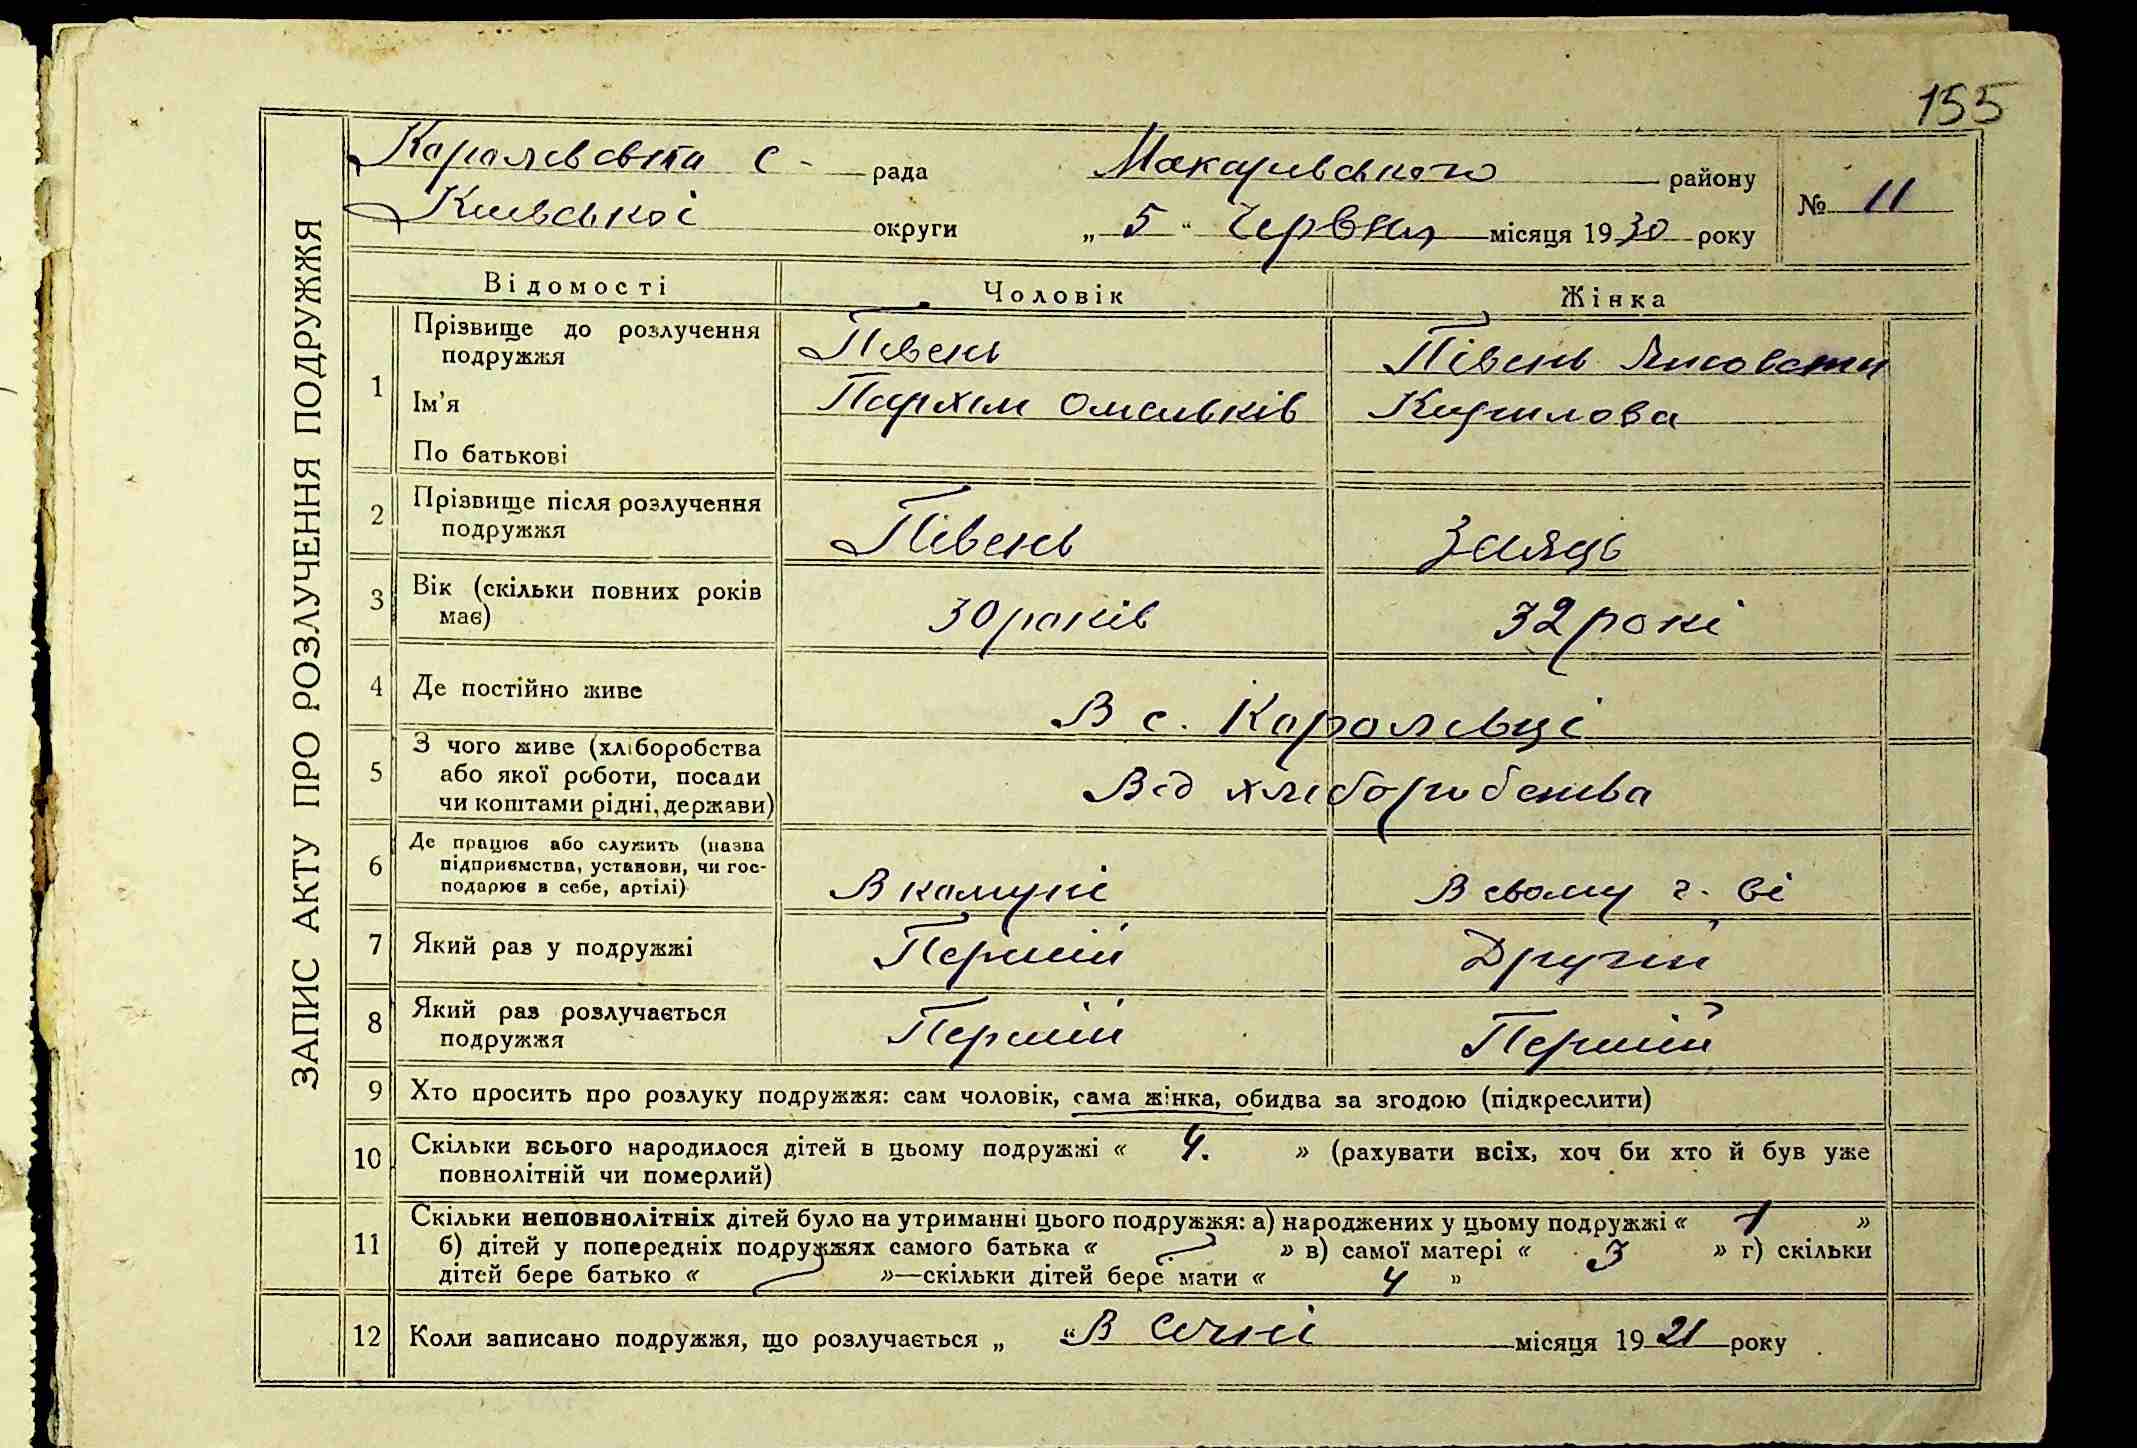 155
ЗАПИС АКТУ ПРО РОЗЛУЧЕННЯ ПОДРУЖЖЯ
Каралевська с - рада Макарівського району
№ 11
Київської округи „ 5 “ Червня місяця 1930 року
Відомості Чоловік Жінка
1 Прізвище до розлучення подружжя Півень Півень
Ім'я Пархім Омельків Кирилова
По батькові
2 Прізвище після розлучення подружжя Півень Заяць
3 Вік (скільки повних років має) 30 років 32 рокі
4 Де постійно живе В с. Каралівці
5 З чого живе (хліборобства або якої роботи, посади чи коштами рідні, держави) Від хліборобства
6 Де працює або служить (назва підприємства, установи, чи господарює в себе, артілі) В комуні В свому г-ві
7 Який раз у подружжі Перший Другий
8 Який раз розлучається подружжя Перший Перший
9 Хто просить про розлуку подружжя: сам чоловік, сама жінка, обидва за згодою (підкреслити)
10 Скільки всього народилося дітей в цьому подружжі « 4. » (рахувати всіх, хоч би хто й був уже
повнолітній чи померлий)
11 Скільки неповнолітніх дітей було на утриманні цього подружжя: а) народжених у цьому подружжі « 1 »
б) дітей у попередніх подружжях самого батька « — » в) самої матері « 3 » г) скільки
дітей бере батько « — »—скільки дітей бере мати « 4 »
12 Коли записано подружжя, що розлучається „ “ В Січні місяця 1921 року